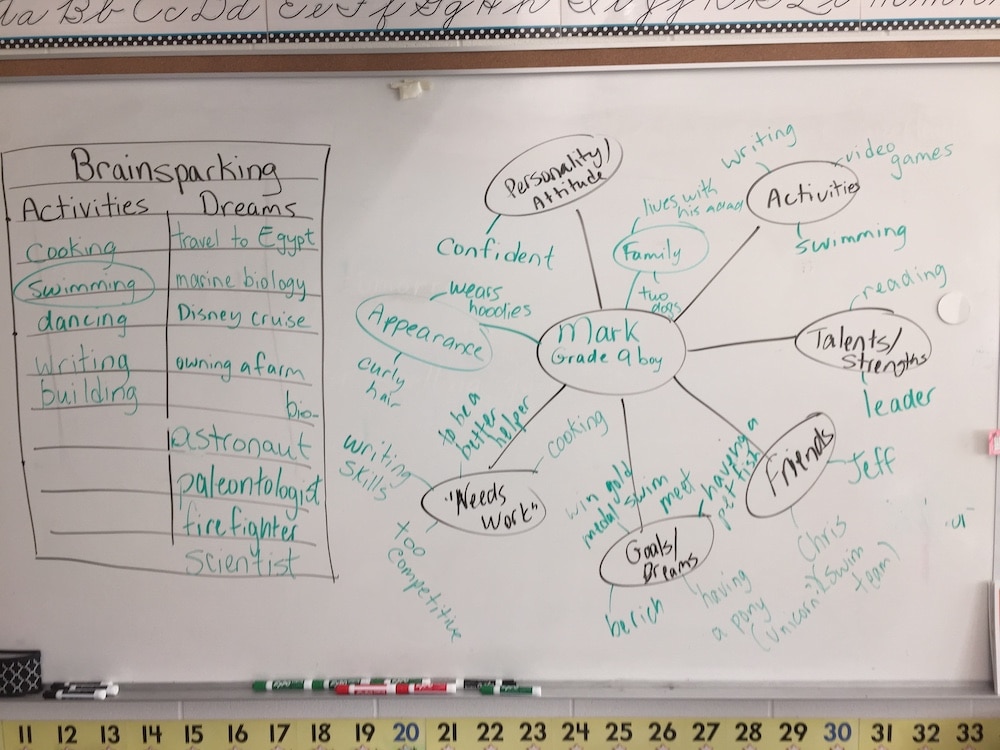 Aa Bb Cc Dd Ee Ff Gg Hh
Brainsparking
Activities Dreams
Cooking travel to Egypt
Swimming marine biology
dancing Disney cruise
writing owning a farm
building bio-
astronaut
paleontologist
firefighter
scientist
Personality/
Attitude
Confident
Family
lives with
his
two
dogs
Activities
writing
video
games
swimming
Appearance
wears
hoodies
curly
hair
Mark
Grade 9 boy
Talents/
Strengths
reading
leader
"Needs
Work"
to be a
butter
helper
cooking
writing
skills
too
competitive
Goals/
Dreams
win gold
medal swim
meet
having a
pet fish
be rich
having
a pony
(unicorn?)
Friends
Jeff
Chris
(swim
team)
11 12 13 14 15 16 17 18 19 20 21 22 23 24 25 26 27 28 29 30 31 32 33